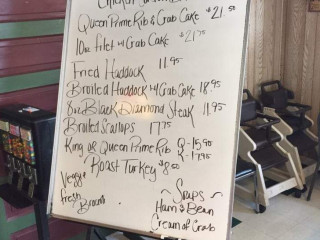 Chicken
Queen Prime Rib & Crab Cake $21.50
10oz filet w/ Crab Cake $21.75
Fried Haddock 11.95
Broiled Haddock w/ Crab Cake 18.95
8oz Black Diamond Steak 11.95
Broiled Scallops 17.75
King or Queen Prime Rib Q-15.90
K-17.95
Roast Turkey $8.50
Veggie
Fresh
Broccoli
~ Soups ~
Ham & Bean
Cream of Crab